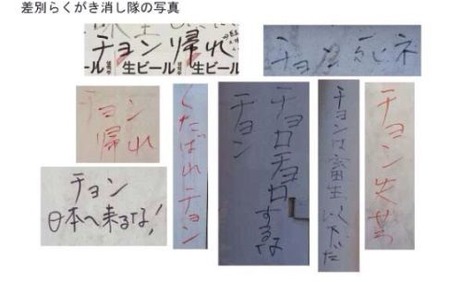 差別らくがき消し隊の写真
チョン帰れ
ール 生ビール 生ビール
チョン死ネ
チョン
帰れ
くたばれチョン
チョロチョロするな
チョン
チョンは畜生以下だ
チョン失せろ
チョン
日本へ来るな!